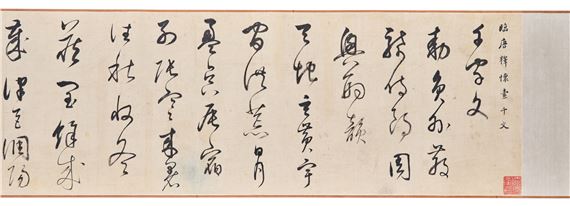 臨唐釋懷素千文
千字文
勅員外散
騎侍郎周
興嗣韻
天地玄黃宇
宙洪荒日月
盈昃辰宿
列張寒來暑
往秋收冬
藏閏餘成
歲律呂調陽